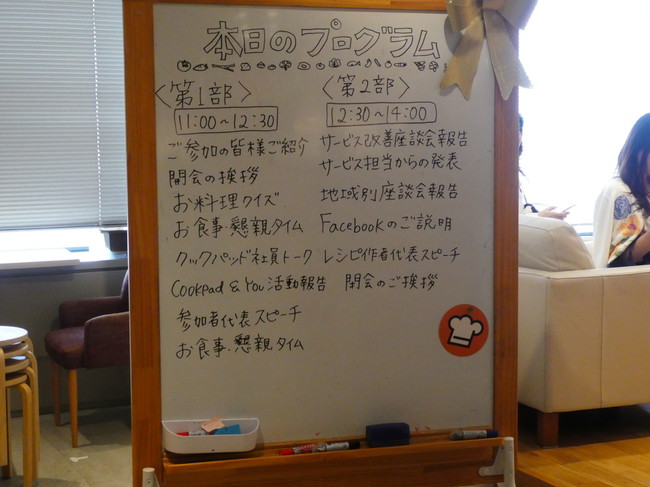 本日のプログラム
〈第1部〉
11:00~12:30
ご参加の皆様ご紹介
開会の挨拶
お料理クイズ
お食事・懇親タイム
クックパッド社員トーク
Cookpad & You 活動報告
参加者代表スピーチ
お食事・懇親タイム
〈第2部〉
12:30~14:00
サービス改善座談会報告
サービス担当からの発表
地域別座談会報告
Facebookのご説明
レシピ作者代表スピーチ
閉会のご挨拶